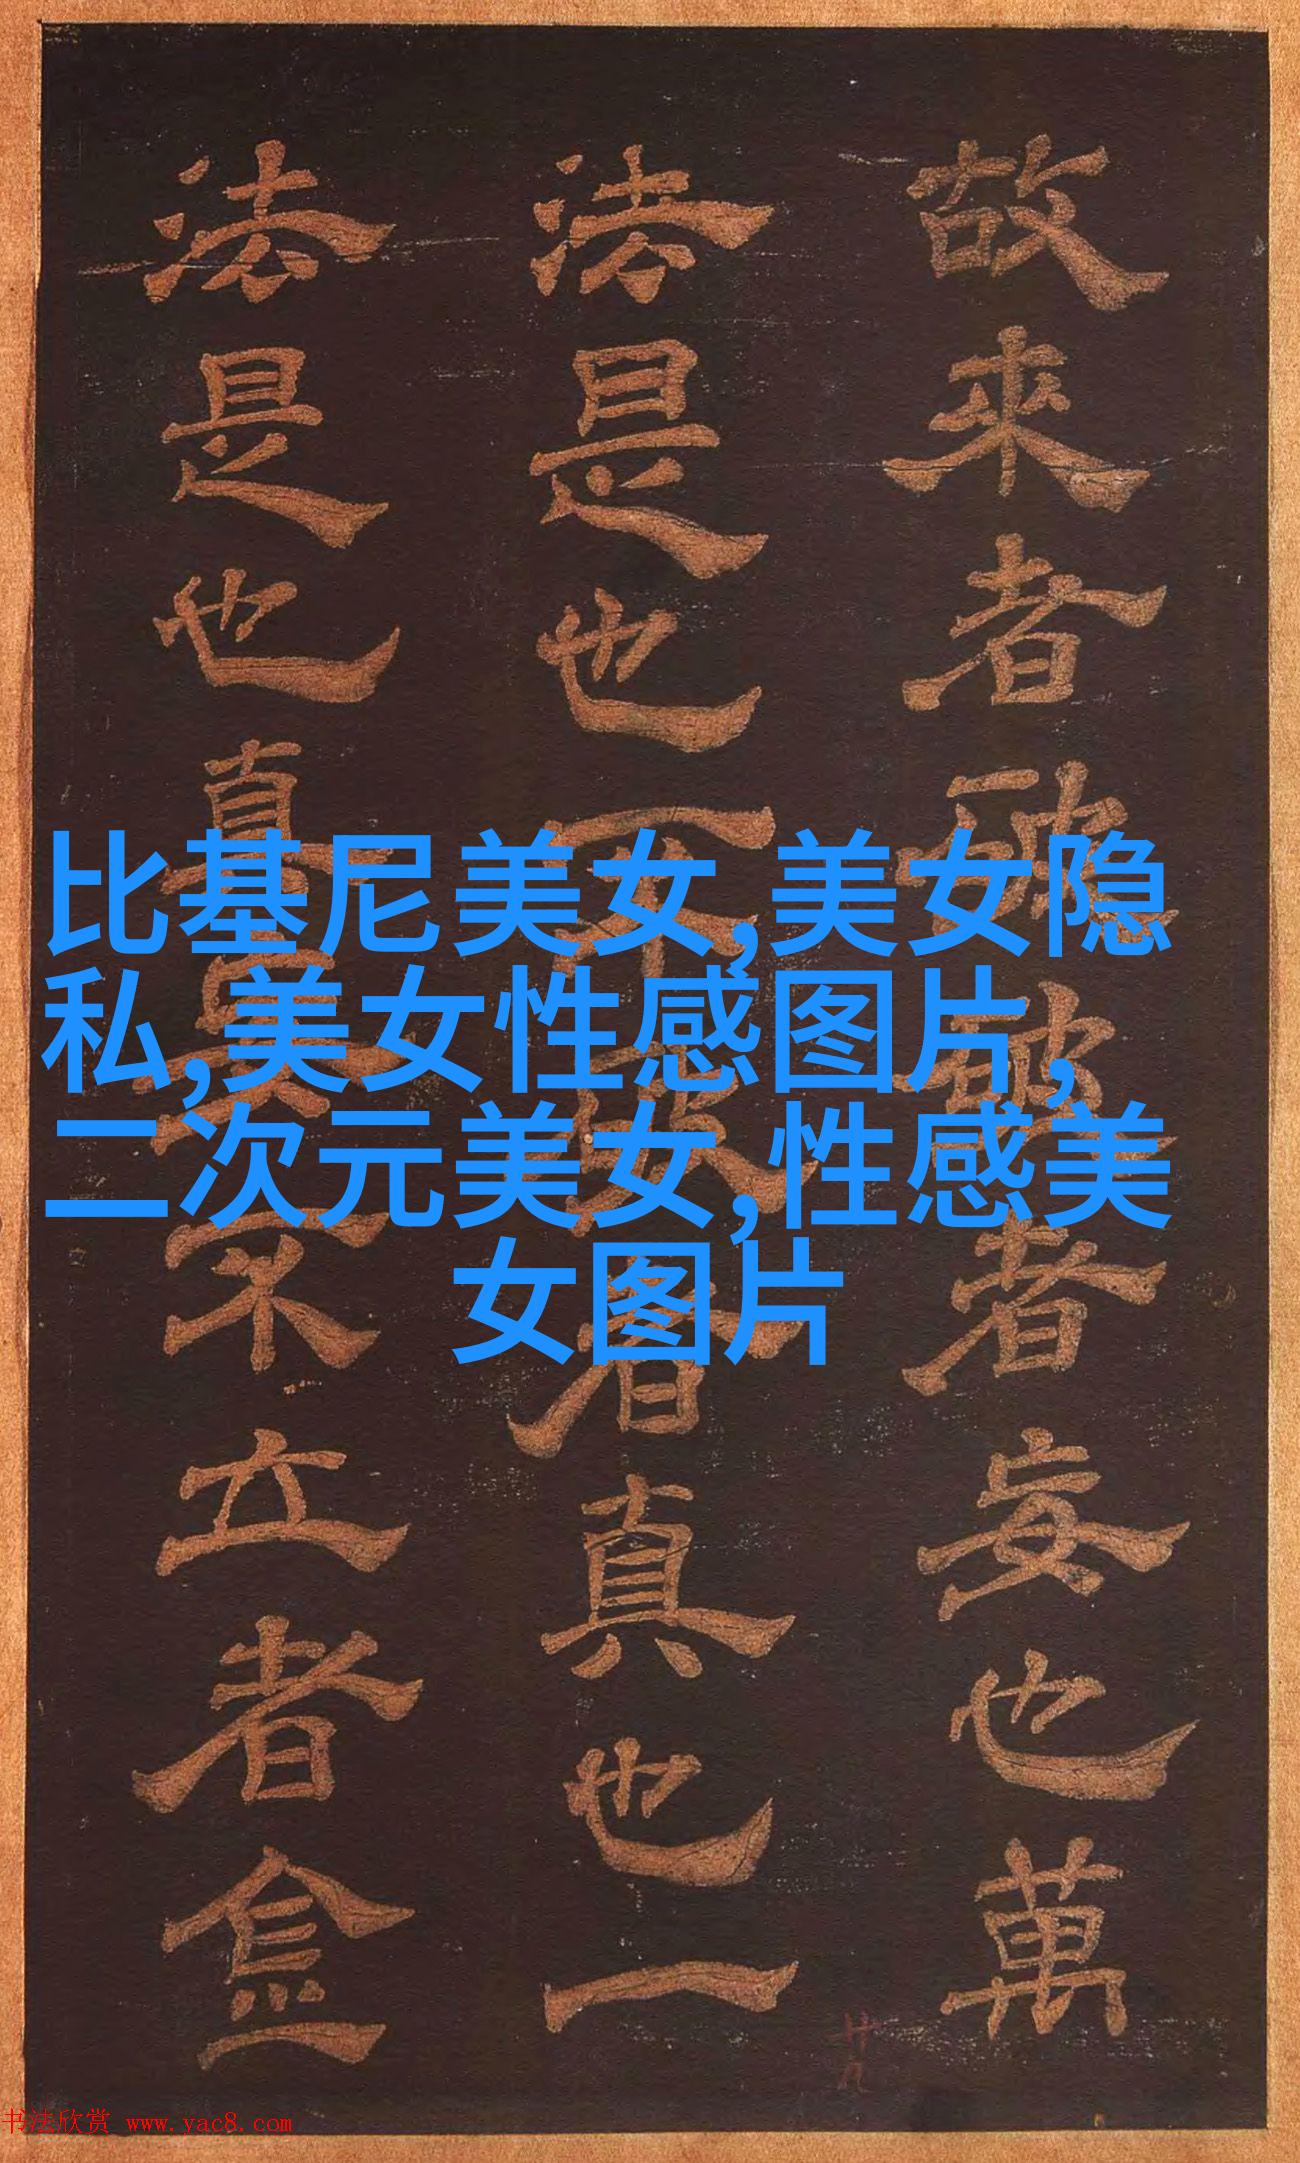 故來者破破者妄也萬
法是也不破者真也一
法是也真妄不立者僉
比基尼美女,美女隐
私,美女性感图片,
二次元美女,性感美
女图片
廿九
书法欣赏 www.yac8.com